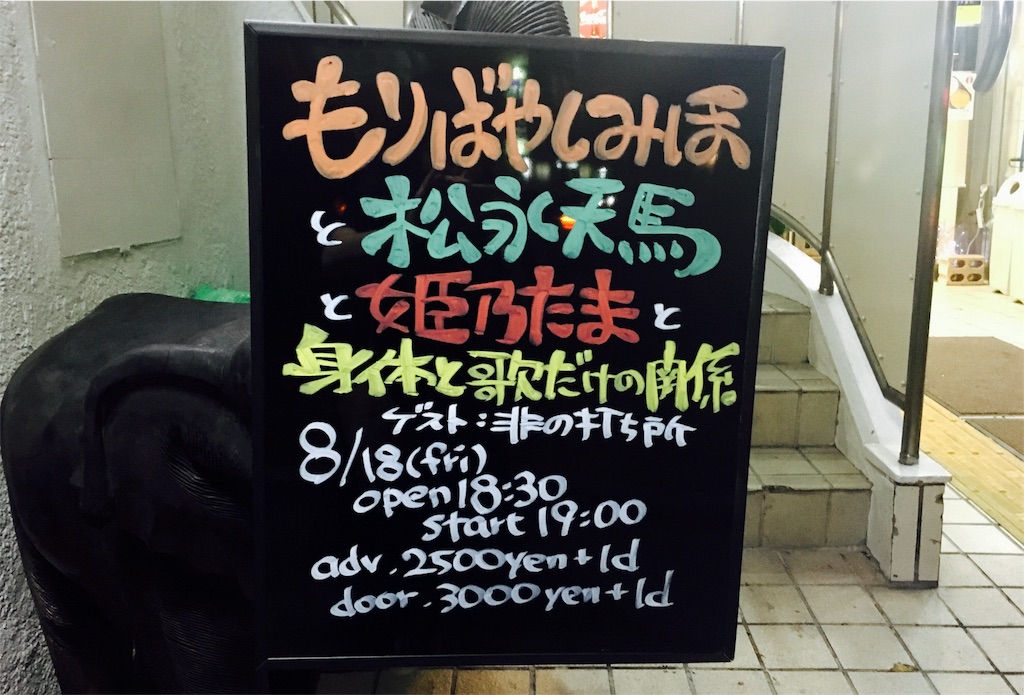 もりばやしみほ
と松永天馬
と姫乃たまと
身体と歌だけの関係
ゲスト:非の打ち所
8/18(fri)
open 18:30
start 19:00
adv. 2500yen+1d
door. 3000yen+1d